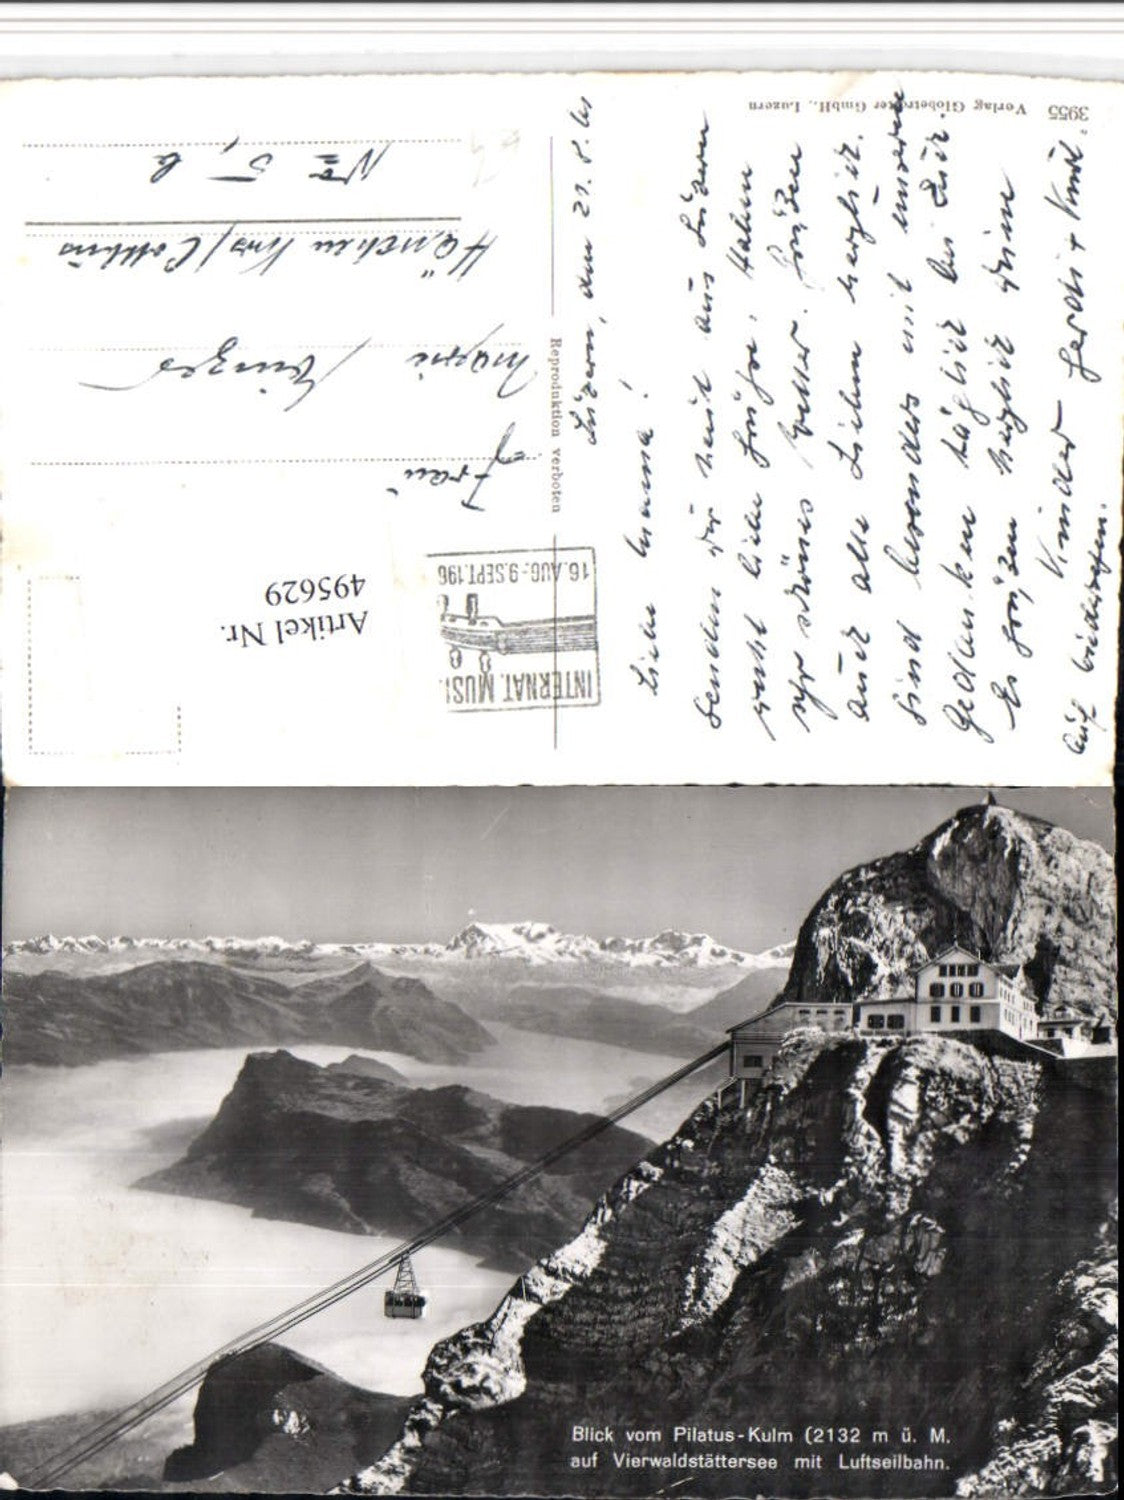 3955 Verlag Globetrotter GmbH., Luzern
Luzern, den 21. 8.
Liebe Mama!
Senden Dir heut aus Luzern
recht liebe Grüße. Haben
sehr schönes Wetter. Grüßen
auch alle Lieben herzlich.
Sind besonders mit unseren
Gedanken täglich bei Euch.
Es grüßen herzlich Deine
Kinder Gerdi + Kurt.
Auf Wiedersehen.
Reproduktion verboten
INTERNAT. MUSI
16.AUG.-9.SEPT.196
Artikel Nr.
495629
Frau
Marie
Hänchen Krs/Cottbus
No 5, b
Blick vom Pilatus-Kulm (2132 m ü. M.
auf Vierwaldstättersee mit Luftseilbahn.